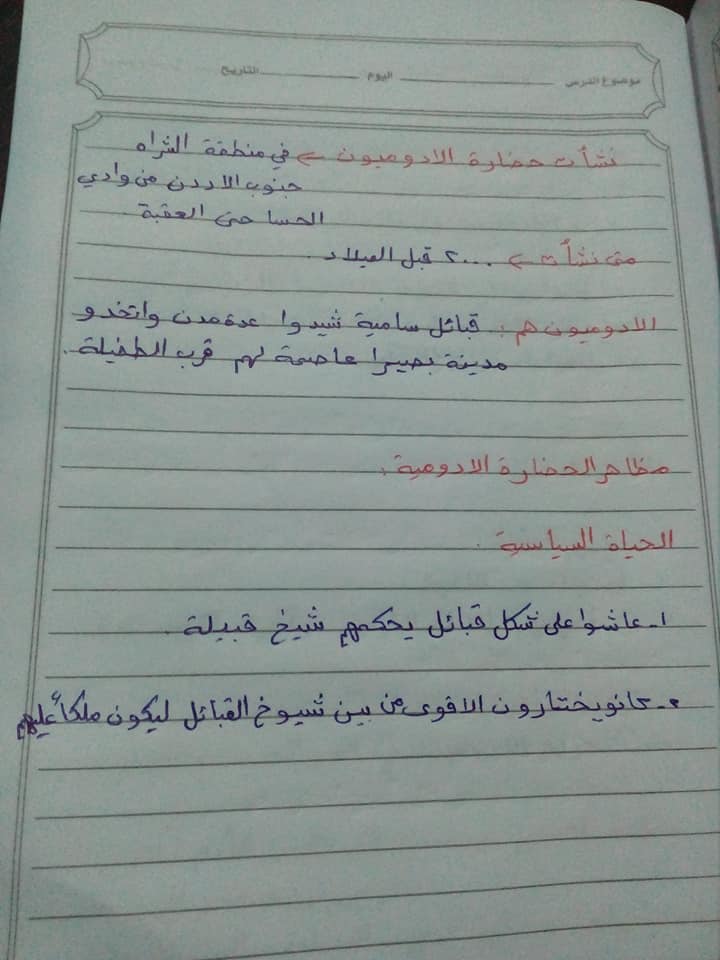 موضوع الدرس اليوم التاريخ
نشأت حضارة الادوميون ← في منطقة الشراه
جنوب الاردن من وادي
الحسا حتى العقبة.
متى نشأت ← ٢٠٠٠ قبل الميلاد.
الادوميون هم: قبائل سامية شيدوا عدة مدن واتخدو
مدينة بصيرا عاصمة لهم قرب الطفيلة.
مظاهر الحضارة الادومية:
الحياة السياسة.
١- عاشوا على شكل قبائل يحكمهم شيخ قبيلة.
٢- كانو يختارون الاقوى من بين شيوخ القبائل ليكون ملكاً عليهم